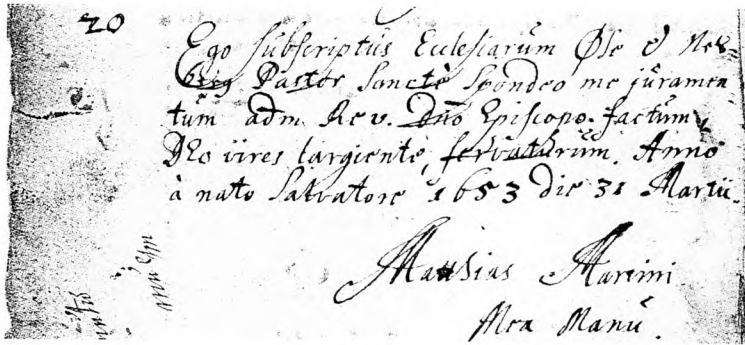 20
Ego subscriptus Ecclesiarum Øse & Nes-
bÿg Pastor sanctè spondeo me juramen
tum adm Rev. Dno Episcopo factum,
Deo vires largiente, servaturum. Anno
à nato Salvatore 1653 die 31 Martii.
Matthias Martini
Mea Manu.